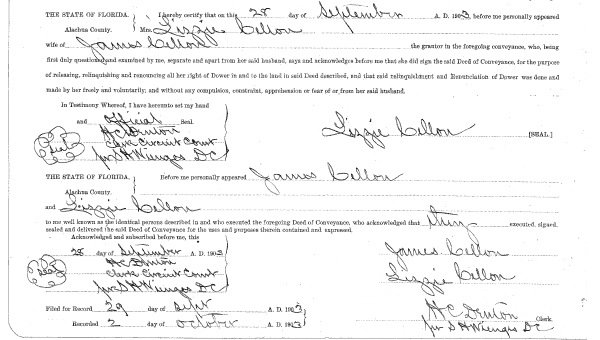 THE STATE OF FLORIDA. I hereby certify that on this 28 day of September A. D. 1903 before me personally appeared
Alachua County. Mrs. Lizzie Cellon
wife of James Cellon the grantor in the foregoing conveyance, who, being
first duly questioned and examined by me, separate and apart from her said husband, says and acknowledges before me that she did sign the said Deed of Conveyance, for the purpose
of releasing, relinquishing and renouncing all her right of Dower in and to the land in said Deed described, and that said relinquishment and Renunciation of Dower was done and
made by her freely and voluntarily; and without any compulsion, constraint, apprehension or fear of or from her said husband.
In Testimony Whereof, I have hereunto set my hand
and official Seal.
H C Denton
Clerk Circuit Court
per S H Wienges D C
Seal
Lizzie Cellon [SEAL]
THE STATE OF FLORIDA. Before me personally appeared James Cellon
Alachua County.
and Lizzie Cellon
to me well known as the identical persons described in and who executed the foregoing Deed of Conveyance, who acknowledged that they executed, signed,
sealed and delivered the said Deed of Conveyance for the uses and purposes therein contained and expressed.
Acknowledged and subscribed before me, this
28 day of September A. D. 1903
H C Denton
Clerk Circuit Court
per S H Wienges D C
Seal
James Cellon
Lizzie Cellon
Filed for Record 29 day of Sept A. D. 1903
Recorded 2 day of October A. D. 1903
H C Denton Clerk.
per S H Wienges D C